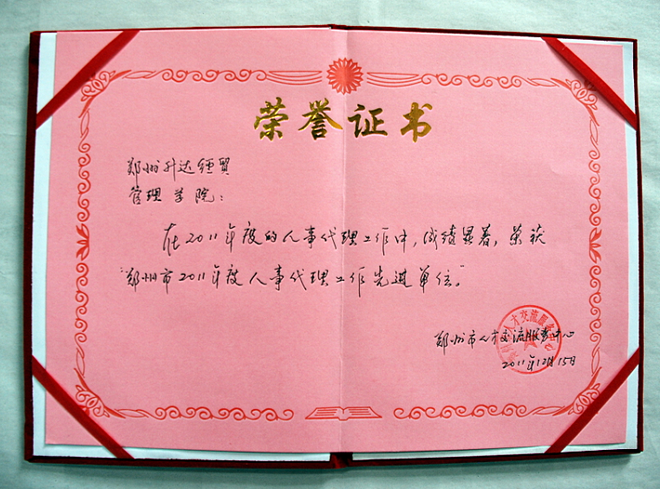 荣誉证书
郑州升达经贸
管理学院：
在2011年度的人事代理工作中，成绩显著，荣获
“郑州市2011年度人事代理工作先进单位。”
郑州市人才交流服务中心
2011年12月15日